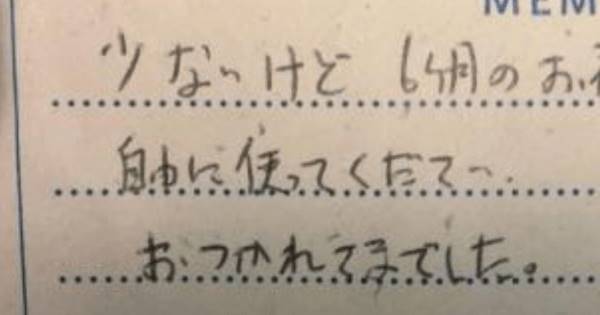 MEM
少ないけど 6ヶ月のお
自由に使ってください.
おつかれさまでした。